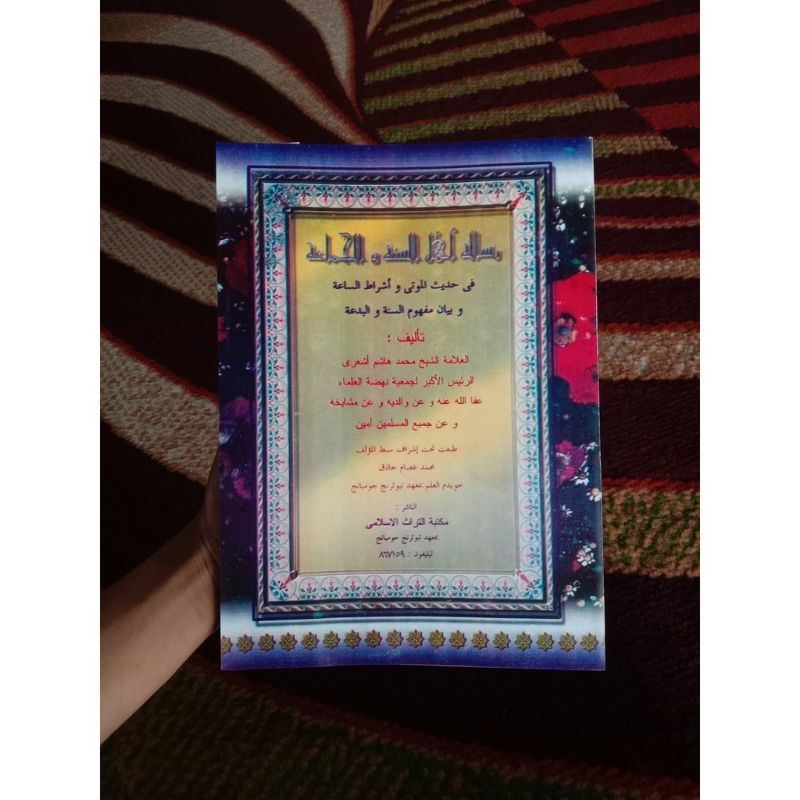 رسالة أهل السنة و الجماعة
في حديث الموتى و أشراط الساعة
و بيان مفهوم السنة و البدعة
تأليف :
العلامة الشيخ محمد هاشم أشعرى
الرئيس الأكبر لجمعية نهضة العلماء
عفا الله عنه و عن والديه و عن مشايخه
و عن جميع المسلمين آمين
طبعت تحت إشراف سبط المؤلف
محمد عصام حاذق
خويدم العلم بمعهد تبوئرنج جومبانج
الناشر :
مكتبة التراث الاسلامى
بمعهد تبوئرنج جومبانج
تيليفون : ٨٦٧١٥٩